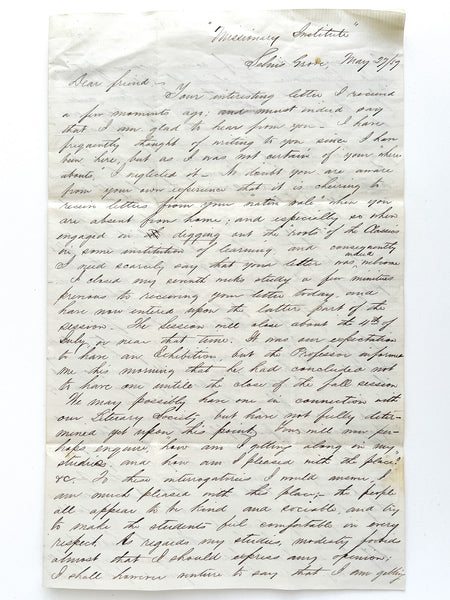 "Missionary Institute"
Selins Grove, May 27/59
Dear friend,
Your interesting letter I received
a few moments ago; and must indeed say
that I am glad to hear from you — I have
frequently thought of writing to you since I have
been here, but as I was not certain of your where
abouts, I neglected it — No doubt you are aware
from your own experience that it is cheering to
receive letters from your native vale when you
are absent from home; and especially so when
engaged in digging out the "roots" of the Classics
in some institution of learning and consequently
I need scarcely say that your letter was indeed welcome
I closed my seventh weeks study a few minutes
previous to receiving your letter today, and
have now entered upon the latter part of the
session. The session will close about the 4th of
July, or near that time. It was our expectation
to have an Exhibition, but the Professor informed
me this morning that he had concluded not
to have one untile the close of the fall session
We may possibly have one in connection with
our Literary Society, but have not fully deter-
mined yet upon this point. You will now per-
haps enquire, how am I getting along in my
studies, and how am I pleased with the place?
&c. To these interrogatories I would answer, I
am much pleased with this place; the people
all appear to be kind and sociable, and try
to make the students feel comfortable in every
respect. As regards my studies, modesty forbids
almost that I should express any opinion;
I shall however venture to say that I am getting